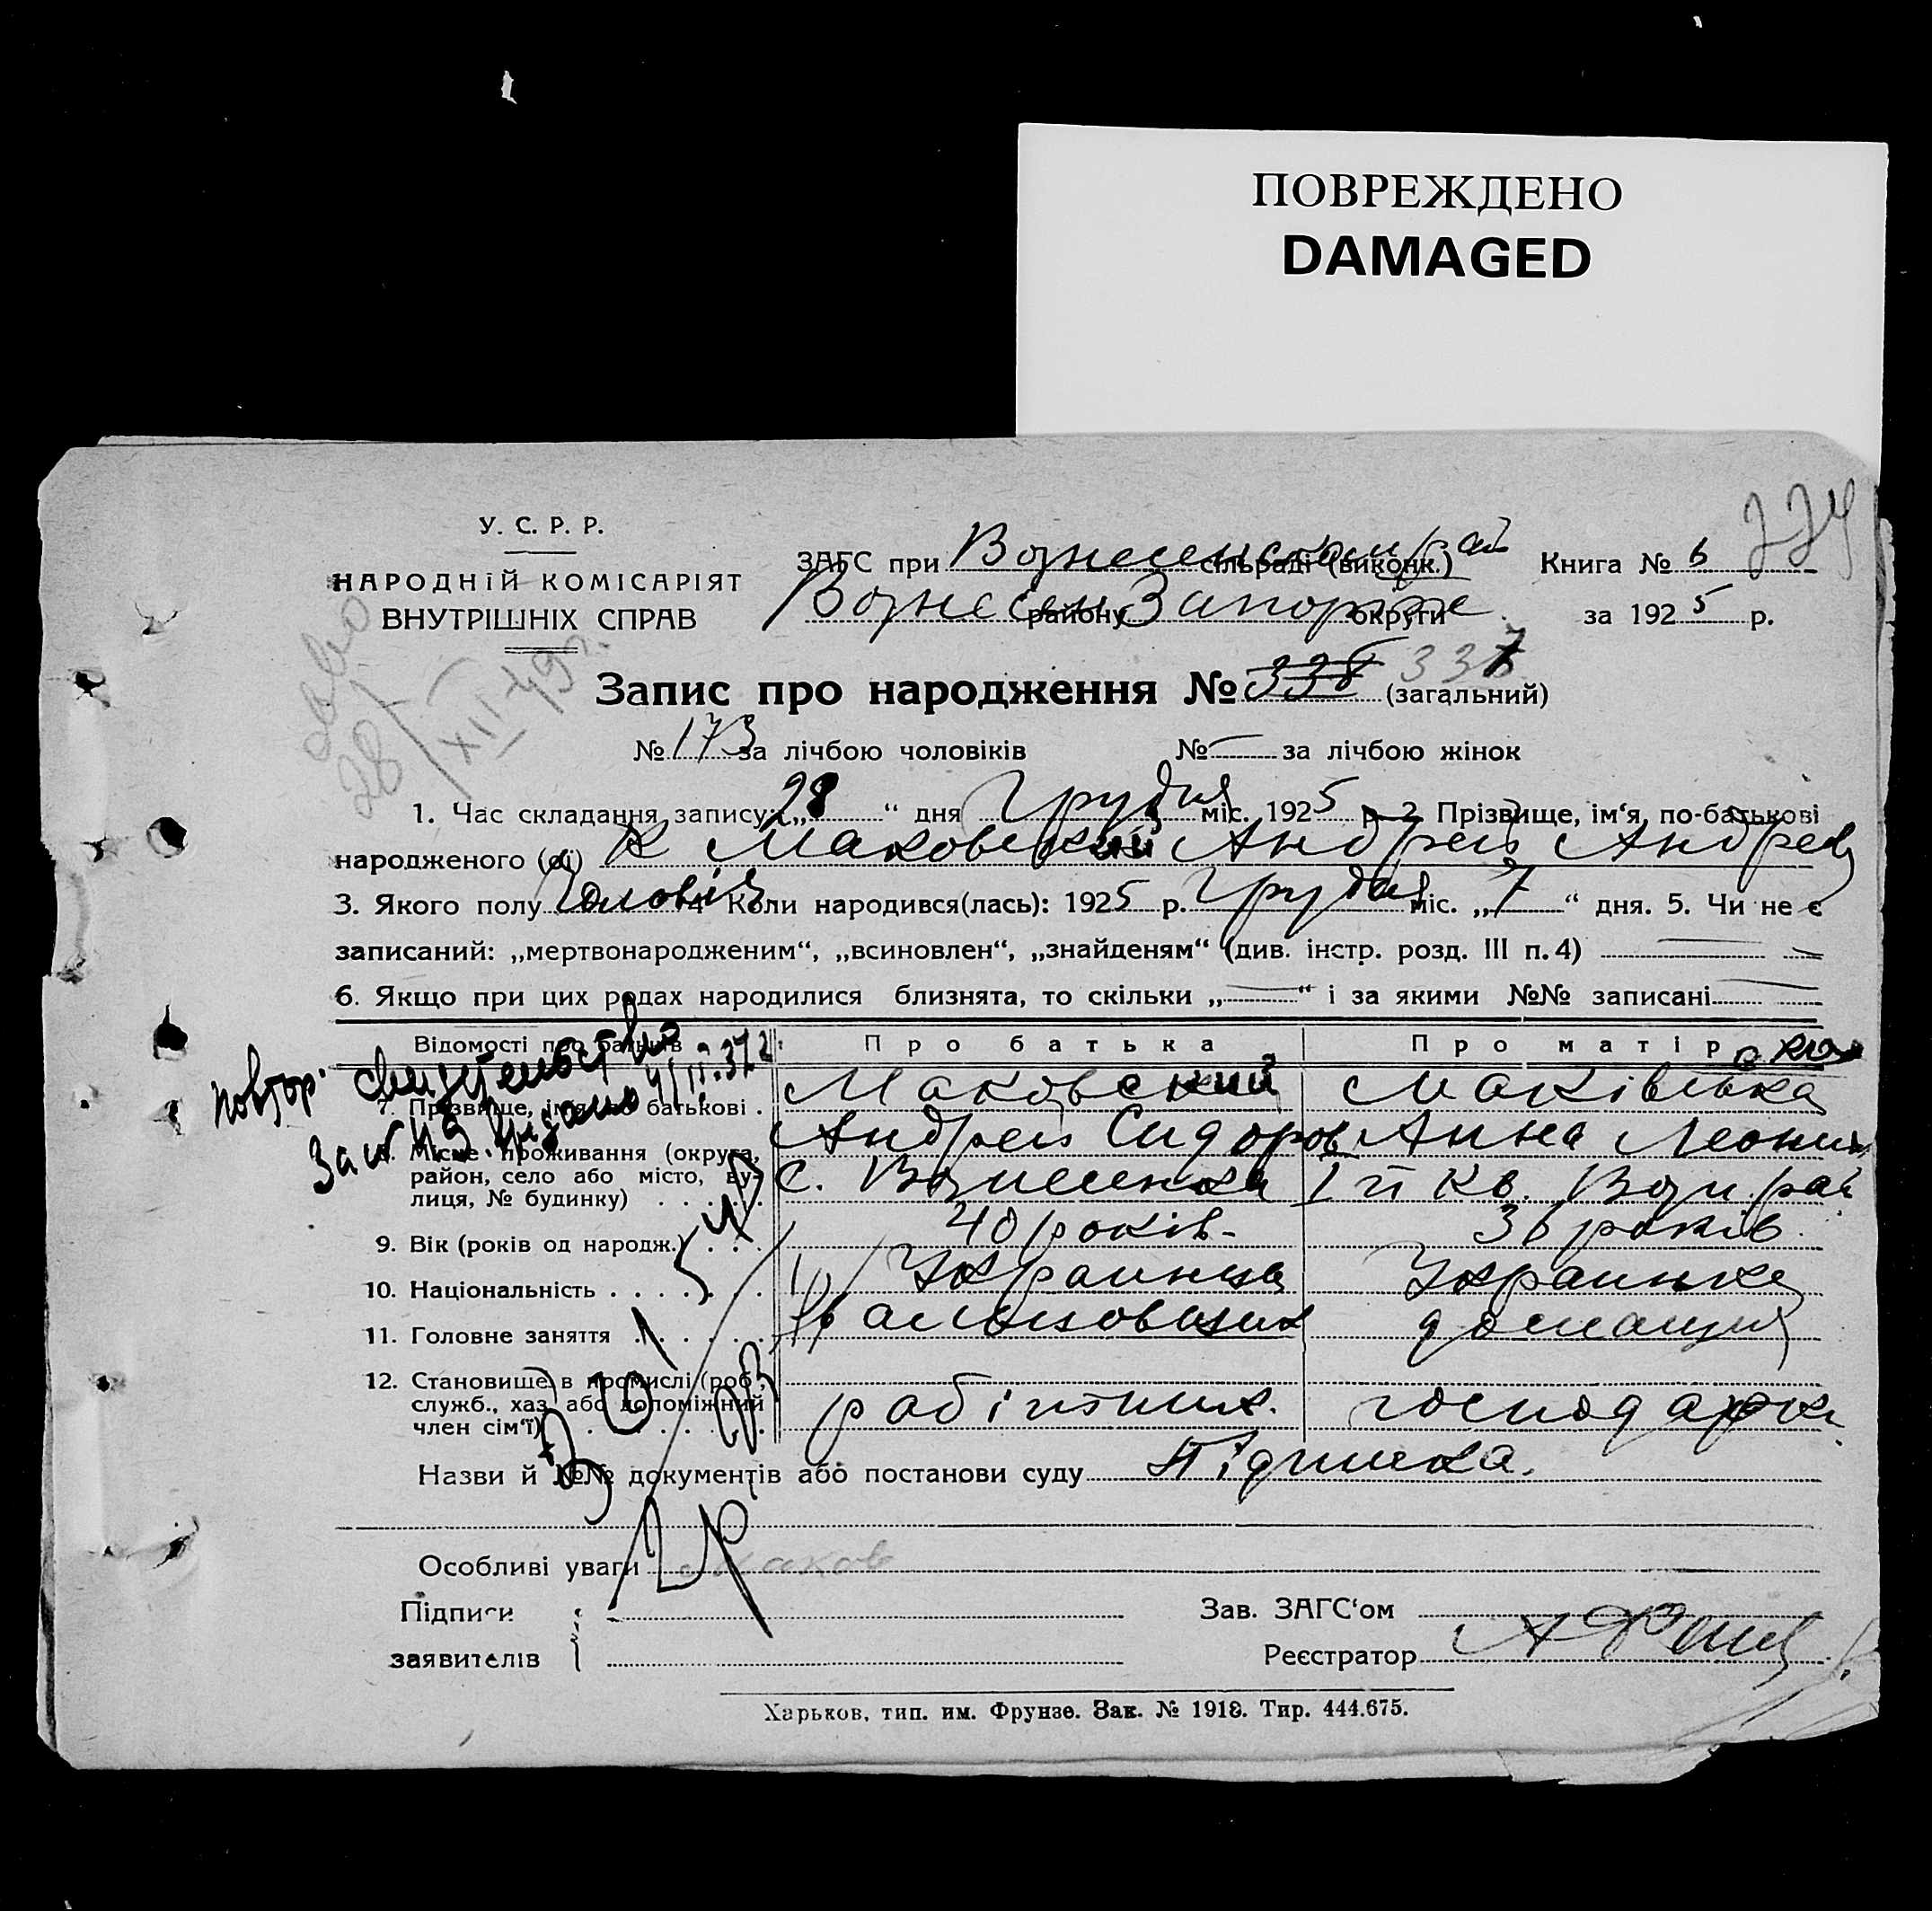 ПОВРЕЖДЕНО
DAMAGED
У. С. Р. Р.
НАРОДНІЙ КОМІСАРІЯТ
ВНУТРІШНІХ СПРАВ
ЗАГС при Вознесенском рай сільраді (виконк.) Книга № 6
Вознесен району Запоріж округи за 1925 р.
Запис про народження № 338 337 (загальний)
№ 173 за лічбою чоловіків № — за лічбою жінок
1. Час складання запису: „28“ дня Грудня міс. 1925 р. 2. Прізвище, ім‘я, по-батькові
народженого (ої) Маковский Андрей Андреев
3. Якого полу Чоловіч. 4. Коли народився(лась): 1925 р. Грудня міс. „7“ дня. 5. Чи не є
записаний: „мертвонародженим“, „всиновлен“, „знайденям“ (див. інстр. розд. III п. 4) —
6. Якщо при цих родах народилися близнята, то скільки „—“ і за якими №№ записані —
Відомості про батьків Про батька Про матір
повтор. свидетельство
7. Прізвище, ім‘я, по батькові . Маковский Маківська
Андрей Сидоров Анна Леонт
8. Місце проживання (округа,
район, село або місто, ву-
лиця, № будинку) С. Вознесенка I й Кв. Возн. рай
9. Вік (років од народж.) . . . 40 років 36 років
10. Національність . . . . . . . Украинец Украинка
11. Головне заняття . . . . . . домашня
12. Становище в промислі (роб.,
служб., хаз. або допоміжний
член сім‘ї) робітник. господарка
Назви й №№ документів або постанови суду Підписка.
Особливі уваги Маков
Підписи
заявителів
Зав. ЗАГС‘ом
Реєстратор
Харьков, тип. им. Фрунзе. Зак. № 1918. Тир. 444.675.